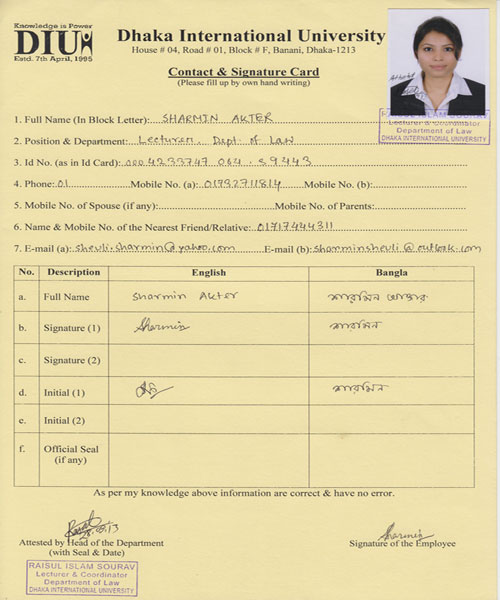 Knowledge is Power
DIU
Estd. 7th April, 1995
Dhaka International University
House # 04, Road # 01, Block # F, Banani, Dhaka-1213
Contact & Signature Card
(Please fill up by own hand writing)
Attested
RAISUL ISLAM SOURAV
Lecturer & Coordinator
Department of Law
DHAKA INTERNATIONAL UNIVERSITY
1. Full Name (In Block Letter): SHARMIN AKTER
2. Position & Department: Lecturer, Dept. of Law
3. Id No. (as in Id Card): 000 4233747 064. 59443
4. Phone: 01 Mobile No. (a): 01732711814 Mobile No. (b):
5. Mobile No. of Spouse (if any): Mobile No. of Parents:
6. Name & Mobile No. of the Nearest Friend/Relative: 01717444311
7. E-mail (a): sheuli.sharmin@yahoo.com E-mail (b): sharminsheuli@outlook.com
No. Description English Bangla
a. Full Name Sharmin Akter শারমিন আক্তার
b. Signature (1) Sharmin শারমিন
c. Signature (2)
d. Initial (1) শারমিন
e. Initial (2)
f. Official Seal
(if any)
As per my knowledge above information are correct & have no error.
Sharmin
Attested by Head of the Department Signature of the Employee
(with Seal & Date)
RAISUL ISLAM SOURAV
Lecturer & Coordinator
Department of Law
DHAKA INTERNATIONAL UNIVERSITY